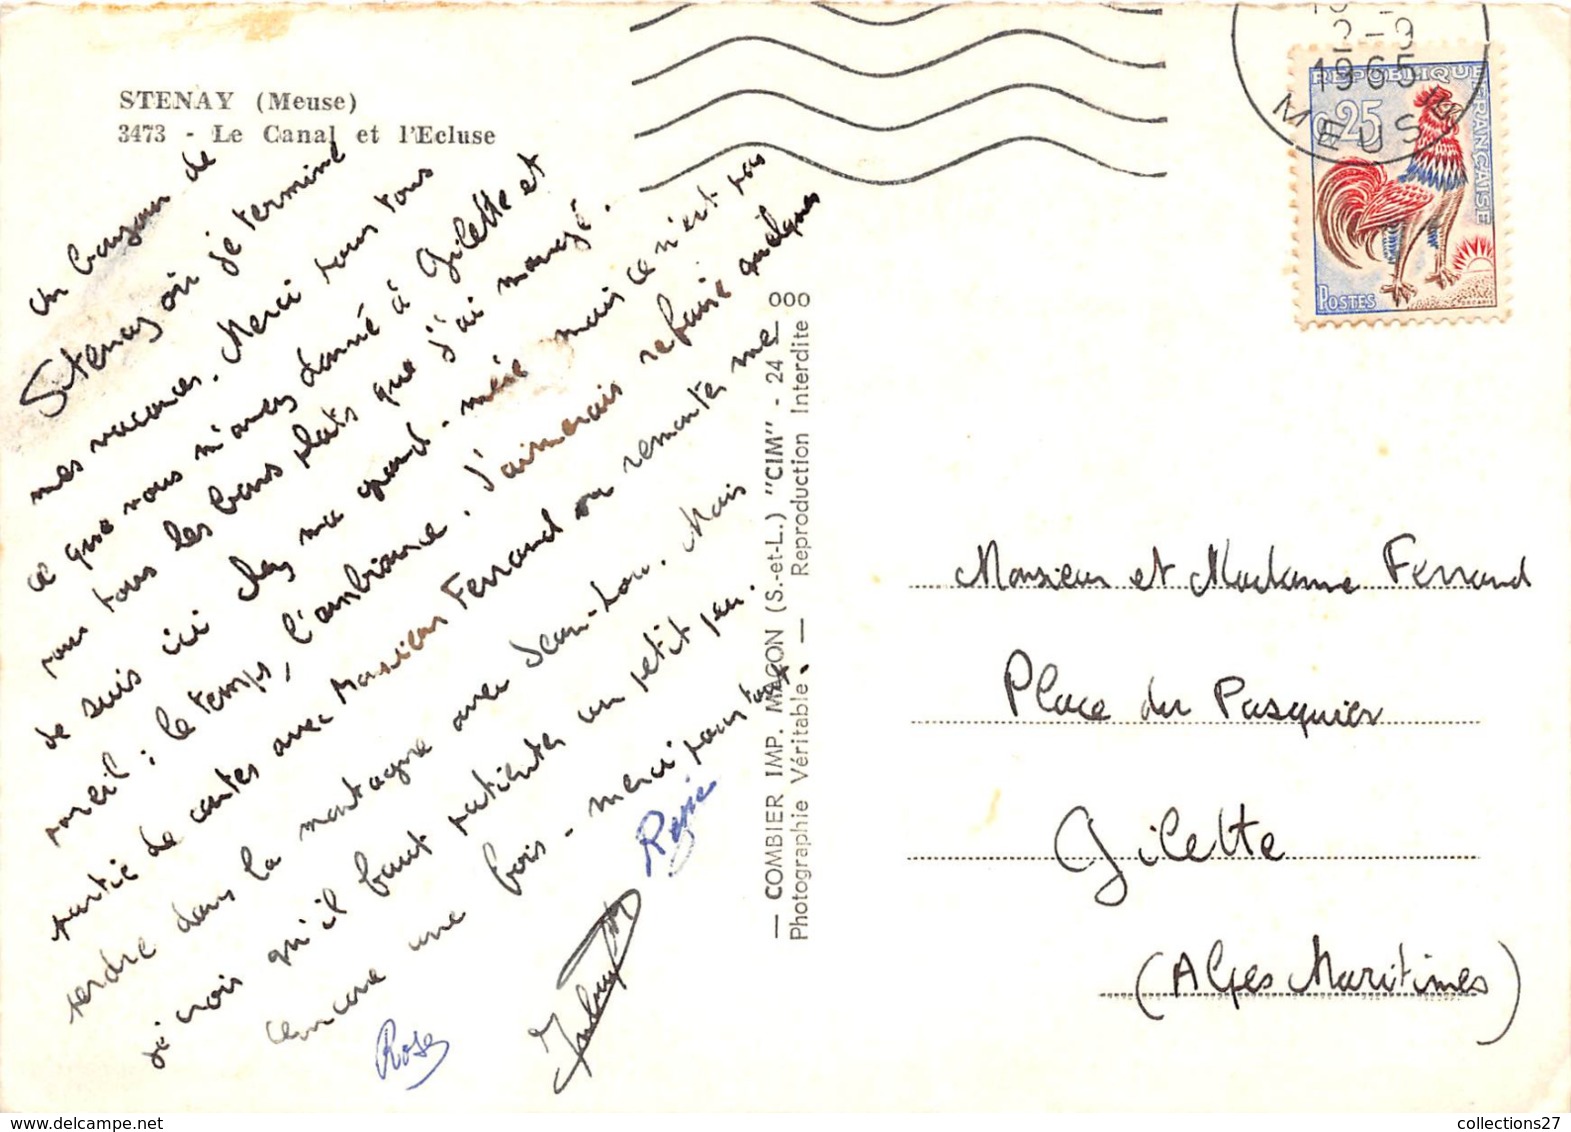 STENAY (Meuse)
3473 - Le Canal et l'Ecluse
un bonjour de
Stenay où je termine
mes vacances. Merci pour tous
ce que vous m'avez donné à Gilette et
pour tous les bons plats que j'ai mangé.
Je suis ici chez ma grand-mère mais ce n'est pas
pareil : le temps, l'ambiance. J'aimerais refaire quelques
partie de cartes avec Monsieur Ferrand ou remonter me
perdre dans la montagne avec Jean-Lou. Mais
je crois qu'il faut patienter un petit peu.
encore une fois - merci pour tout.
Rose
COMBIER IMP. MACON (S.-et-L.) "CIM" - 24 000
Photographie Véritable — Reproduction Interdite
2-9
1965
MEUSE
REPUBLIQUE FRANÇAISE
0,25
POSTES
Monsieur et Madame Ferrand
Place du Pasquier
Gilette
(Alpes Maritimes)
collections27